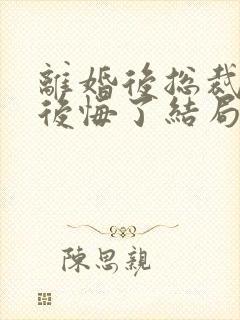 離婚後総裁
後悔了結局
陳思親